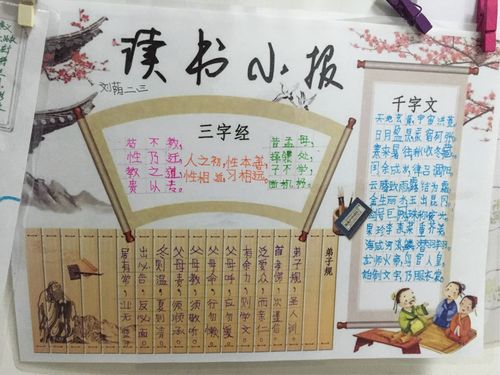 读书小报
三字经
人之初,性本善,
性相近,习相远。
苟不教,
性乃迁,
教之道,
贵以专。
昔孟母,
择邻处,
子不学,
断机杼。
千字文
天地玄黄,宇宙洪荒
日月盈昃,辰宿列张
寒来暑往,秋收冬藏
闰余成岁,律吕调阳
云腾致雨,露结为霜
金生丽水,玉出昆冈
剑号巨阙,珠称夜光
果珍李柰,菜重芥姜
海咸河淡,鳞潜羽翔
龙师火帝,鸟官人皇
始制文字,乃服衣裳
弟子规
弟子规,圣人训。
首孝悌,次谨信。
泛爱众,而亲仁。
有余力,则学文。
父母呼,应勿缓。
父母命,行勿懒。
父母教,须敬听。
父母责,须顺承。
冬则温,夏则凊。
出必告,反必面。
居有常,业无变。